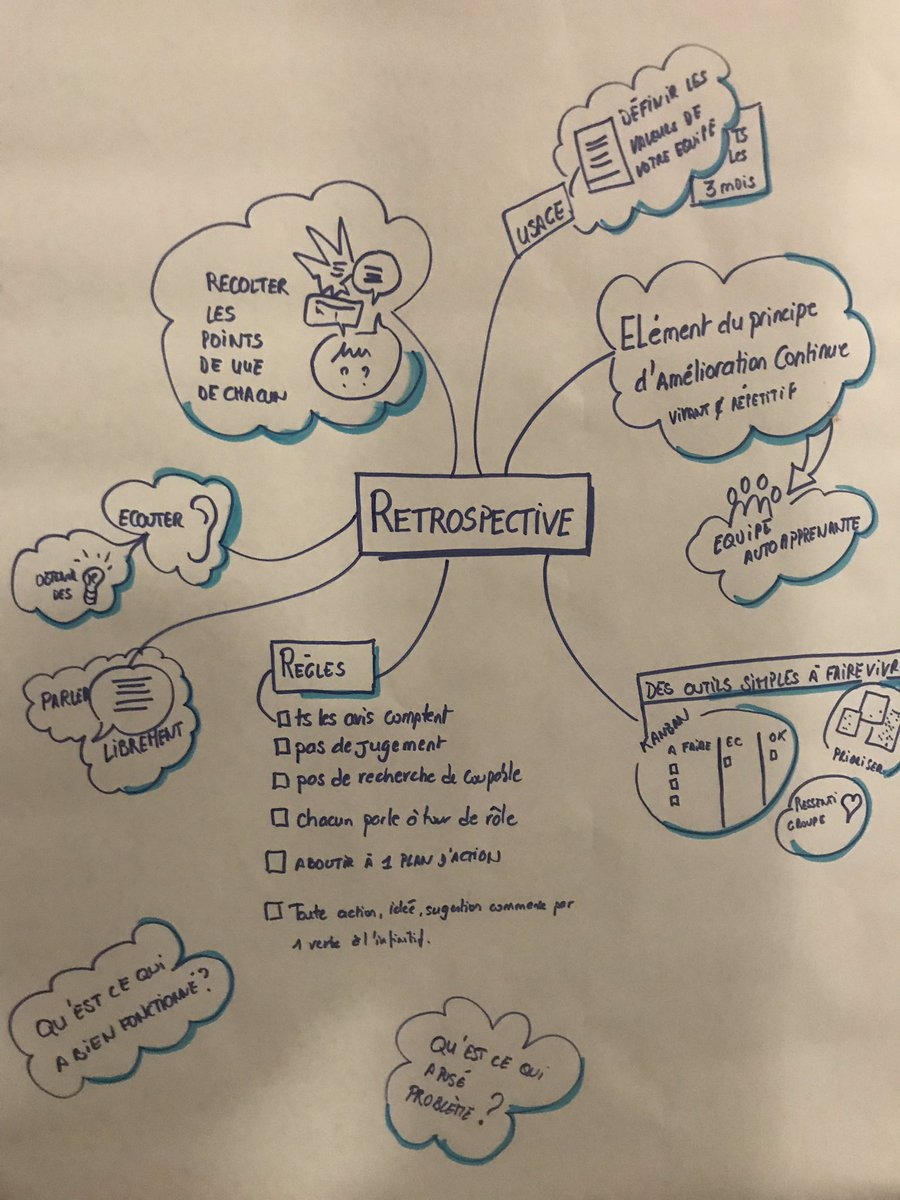 DÉFINIR LES
VALEURS DE
VOTRE EQUIPE
TS
LES
3 MOIS
USAGE
RECOLTER
LES
POINTS
DE VUE
DE CHACUN
? ?
ELément du principe
d'Amélioration Continue
VIVANT & RÉPETITIF
RETROSPECTIVE
EQUIPE
AUTOAPPRENANTE
ECOUTER
DES
PARLER
LIBREMENT
RÈGLES
ts les avis comptent
pas de jugement
pas de recherche de coupable
chacun parle à tour de rôle
ABOUTIR À 1 PLAN D'ACTION
Toute action, ideé, sugestion commence par
1 verbe à l'infinitif.
DES OUTILS SIMPLES À FAIRE VIVR
KANBAN
A FAIRE EC OK
PRIORISER
RESSENTI
GROUPE
QU'EST CE QUI
A BIEN FONCTIONNÉ?
QU'EST CE QUI
A POSÉ
PROBLÈME ?